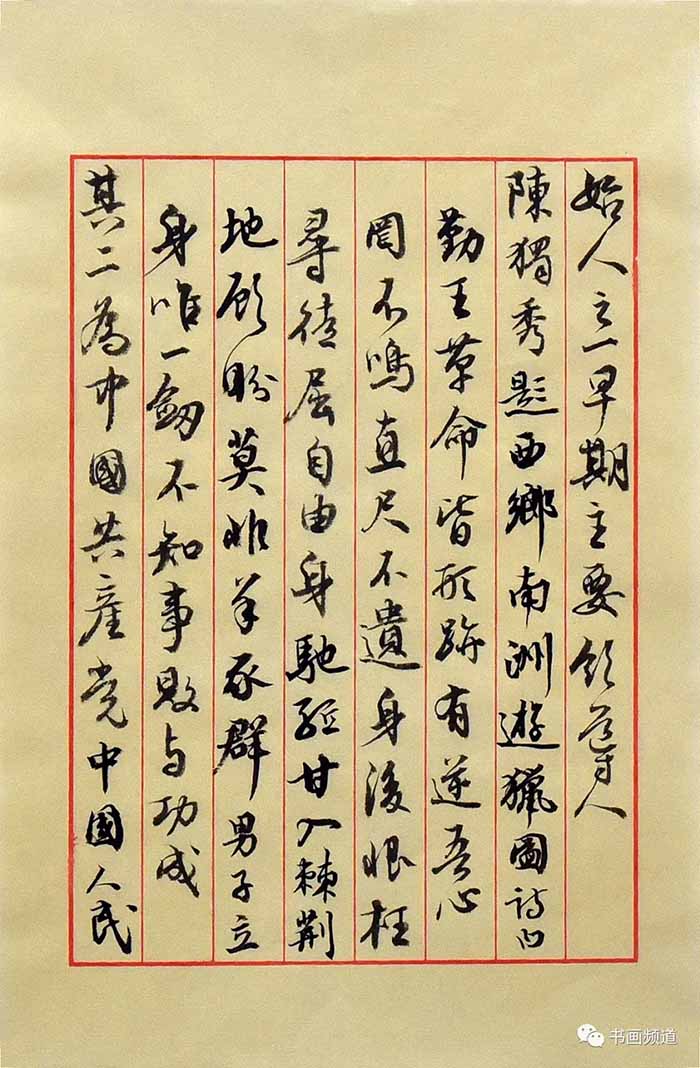 始人之一早期主要領導人
陳獨秀題西鄉南洲遊獵圖詩曰
勤王革命皆形跡有逆吾心
罔不鳴直尺不遺身後恨枉
尋徒屈自由身馳驅甘入棘荊
地顧盼莫非羊豕群男子立
身唯一劍不知事敗与功成
其二為中國共產党中國人民
书画频道